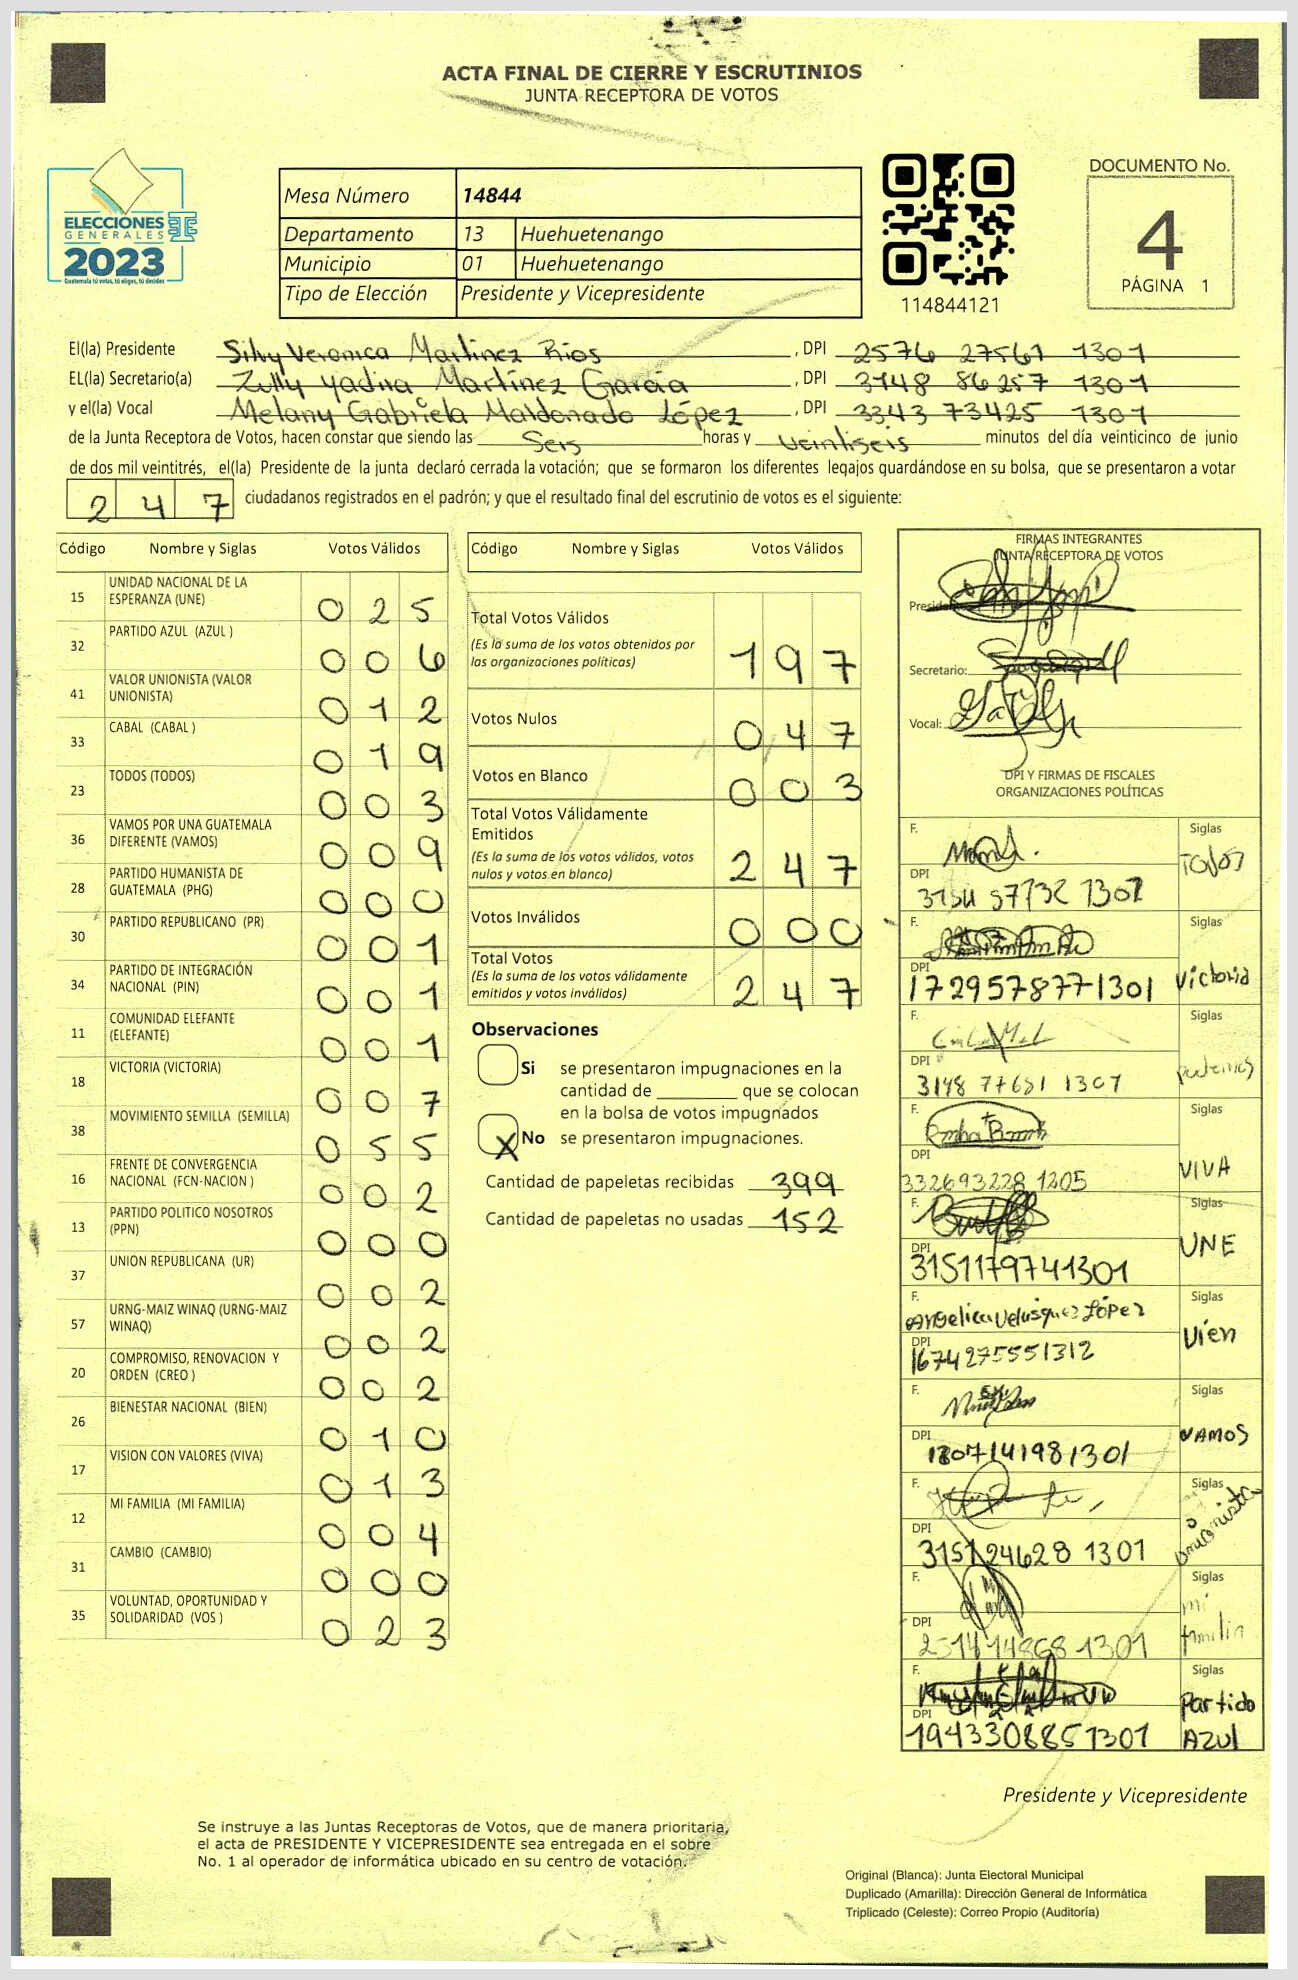 ACTA FINAL DE CIERRE Y ESCRUTINIOS
JUNTA RECEPTORA DE VOTOS
ELECCIONES
GENERALES
2023
Guatemala tú votas, tú eliges, tú decides
TSE
Mesa Número 14844
Departamento 13 Huehuetenango
Municipio 01 Huehuetenango
Tipo de Elección Presidente y Vicepresidente
114844121
DOCUMENTO No.
4
PÁGINA 1
El(la) Presidente Silvy Veronica Martinez Rios, DPI 2576 27561 1301
EL(la) Secretario(a) Zully Yadira Martínez García, DPI 3148 86257 1301
y el(la) Vocal Melany Gabriela Maldonado López, DPI 3343 73425 1301
de la Junta Receptora de Votos, hacen constar que siendo las Seis horas y veintiseis minutos del día veinticinco de junio
de dos mil veintitrés, el(la) Presidente de la junta declaró cerrada la votación; que se formaron los diferentes legajos guardándose en su bolsa, que se presentaron a votar
247 ciudadanos registrados en el padrón; y que el resultado final del escrutinio de votos es el siguiente:
Código Nombre y Siglas Votos Válidos
15 UNIDAD NACIONAL DE LA ESPERANZA (UNE) 025
32 PARTIDO AZUL (AZUL ) 006
41 VALOR UNIONISTA (VALOR UNIONISTA) 012
33 CABAL (CABAL ) 019
23 TODOS (TODOS) 003
36 VAMOS POR UNA GUATEMALA DIFERENTE (VAMOS) 009
28 PARTIDO HUMANISTA DE GUATEMALA (PHG) 000
30 PARTIDO REPUBLICANO (PR) 001
34 PARTIDO DE INTEGRACIÓN NACIONAL (PIN) 001
11 COMUNIDAD ELEFANTE (ELEFANTE) 001
18 VICTORIA (VICTORIA) 007
38 MOVIMIENTO SEMILLA (SEMILLA) 055
16 FRENTE DE CONVERGENCIA NACIONAL (FCN-NACION ) 002
13 PARTIDO POLITICO NOSOTROS (PPN) 000
37 UNION REPUBLICANA (UR) 002
57 URNG-MAIZ WINAQ (URNG-MAIZ WINAQ) 002
20 COMPROMISO, RENOVACION Y ORDEN (CREO ) 002
26 BIENESTAR NACIONAL (BIEN) 010
17 VISION CON VALORES (VIVA) 013
12 MI FAMILIA (MI FAMILIA) 004
31 CAMBIO (CAMBIO) 000
35 VOLUNTAD, OPORTUNIDAD Y SOLIDARIDAD (VOS ) 023
Código Nombre y Siglas Votos Válidos
Total Votos Válidos 197
(Es la suma de los votos obtenidos por
las organizaciones políticas)
Votos Nulos 047
Votos en Blanco 003
Total Votos Válidamente
Emitidos 247
(Es la suma de los votos válidos, votos
nulos y votos en blanco)
Votos Inválidos 000
Total Votos 247
(Es la suma de los votos válidamente
emitidos y votos inválidos)
Observaciones
Si se presentaron impugnaciones en la
cantidad de ________ que se colocan
en la bolsa de votos impugnados
X No se presentaron impugnaciones.
Cantidad de papeletas recibidas 399
Cantidad de papeletas no usadas 152
FIRMAS INTEGRANTES
JUNTA RECEPTORA DE VOTOS
Presidente:
Secretario:
Vocal:
DPI Y FIRMAS DE FISCALES
ORGANIZACIONES POLÍTICAS
F. Siglas TODOS
DPI
F. Siglas Victoria
DPI 1729578771301
F. Siglas Podemos
DPI 3148 77651 1307
F. Siglas VIVA
DPI 332693228 1205
F. Siglas UNE
DPI 3151179741301
F. Angelica Velasquez López Siglas Vien
DPI 1674275551312
F. Siglas VAMOS
DPI 1807141981301
F. Siglas Unionista
DPI 3151 24628 1301
F. Siglas mi familia
DPI 1301
F. Siglas Partido AZUL
DPI 1943308851301
Presidente y Vicepresidente
Se instruye a las Juntas Receptoras de Votos, que de manera prioritaria,
el acta de PRESIDENTE Y VICEPRESIDENTE sea entregada en el sobre
No. 1 al operador de informática ubicado en su centro de votación.
Original (Blanca): Junta Electoral Municipal
Duplicado (Amarilla): Dirección General de Informática
Triplicado (Celeste): Correo Propio (Auditoría)